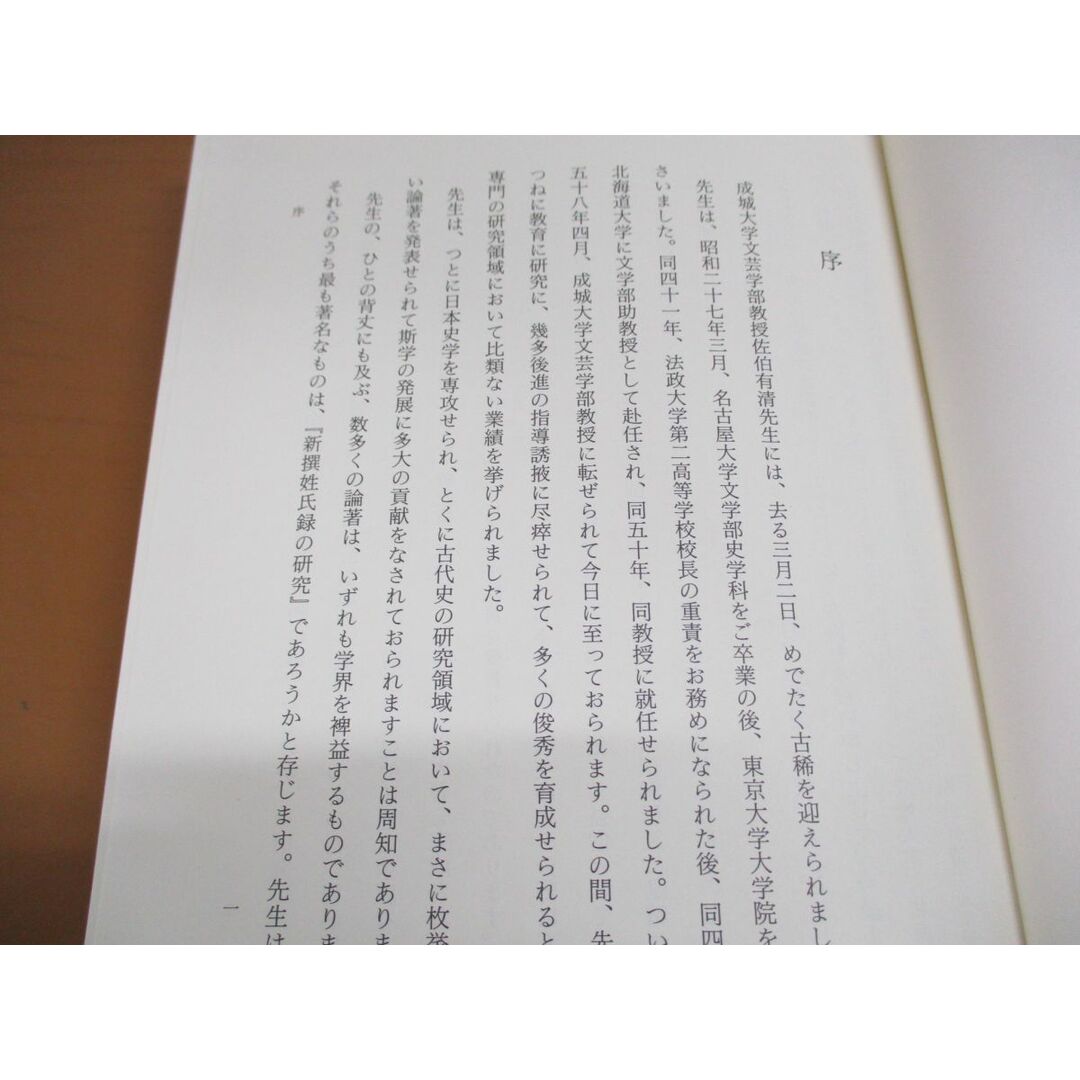 序
成城大学文芸学部教授佐伯有清先生には、去る三月二日、めでたく古稀を迎えられまし
先生は、昭和二十七年三月、名古屋大学文学部史学科をご卒業の後、東京大学大学院を
さいました。同四十一年、法政大学第二高等学校校長の重責をお務めになられた後、同四
北海道大学に文学部助教授として赴任され、同五十年、同教授に就任せられました。つい
五十八年四月、成城大学文芸学部教授に転ぜられて今日に至っております。この間、先
つねに教育に研究に、幾多後進の指導誘掖に尽瘁せられて、多くの俊秀を育成せられると
専門の研究領域において比類ない業績を挙げられました。
先生は、つとに日本史学を専攻せられ、とくに古代史の研究領域において、まさに枚挙
い論著を発表せられて斯学の発展に多大の貢献をなされておられますことは周知でありま
先生の、ひとの背丈にも及ぶ、数多くの論著は、いずれも学界を裨益するものでありま
それらのうち最も著名なものは、『新撰姓氏録の研究』であろうかと存じます。先生は
序
一